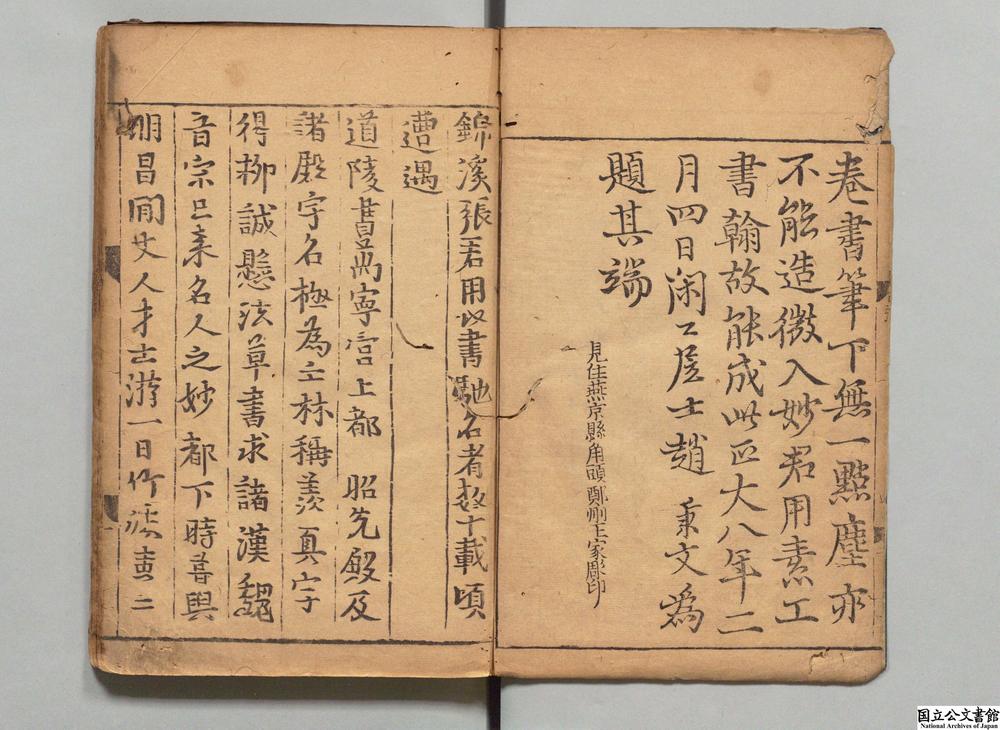 卷書筆下無一點塵亦
不能造微入妙君用素工
書翰故能成此正大八年二
月四日閑〻居士趙秉文爲
題其端
見住燕京縣角頭鄭州王家彫印
錦溪張君用以書馳名者數十載頃
遭遇
道陵書萬寧宫上都 昭先殿及
諸殿字名極為士林稱羨真字
得柳誠懸法草書求諸漢魏
晉宋已来名人之妙都下時晋與
明昌間文人才士游一日作濡壺二
国立公文書館
National Archives of Japan